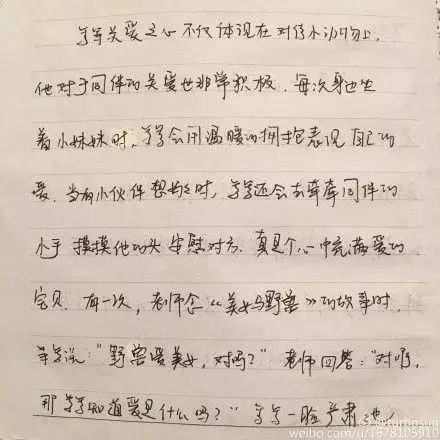 等等关爱之心不仅体现在对待小动物上,
他对于同伴的关爱也非常积极。每次身边坐
着小妹妹时,等等会用温暖的拥抱表现自己的
爱。当有小伙伴想妈妈时,等等还会去牵牵同伴的
小手 摸摸他的头 安慰对方。真是个心中充满爱的
宝贝。有一次,老师念《美女与野兽》的故事时,
等等说:“野兽爱美女,对吗?”老师回答:“对啊,
那等等知道爱是什么吗?”等等一脸严肃地
@turbosun
weibo.com/u/1678105910